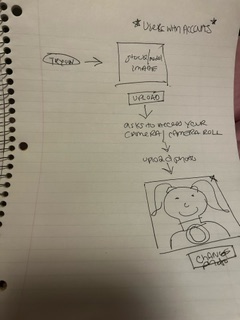 *USERS WITH ACCOUNTS*
TRY ON
IMAGE
UPLOAD
ASKS TO ACCESS YOUR
CAMERA / CAMERA ROLL
UPLOAD PHOTO
CHANGE
PHOTO